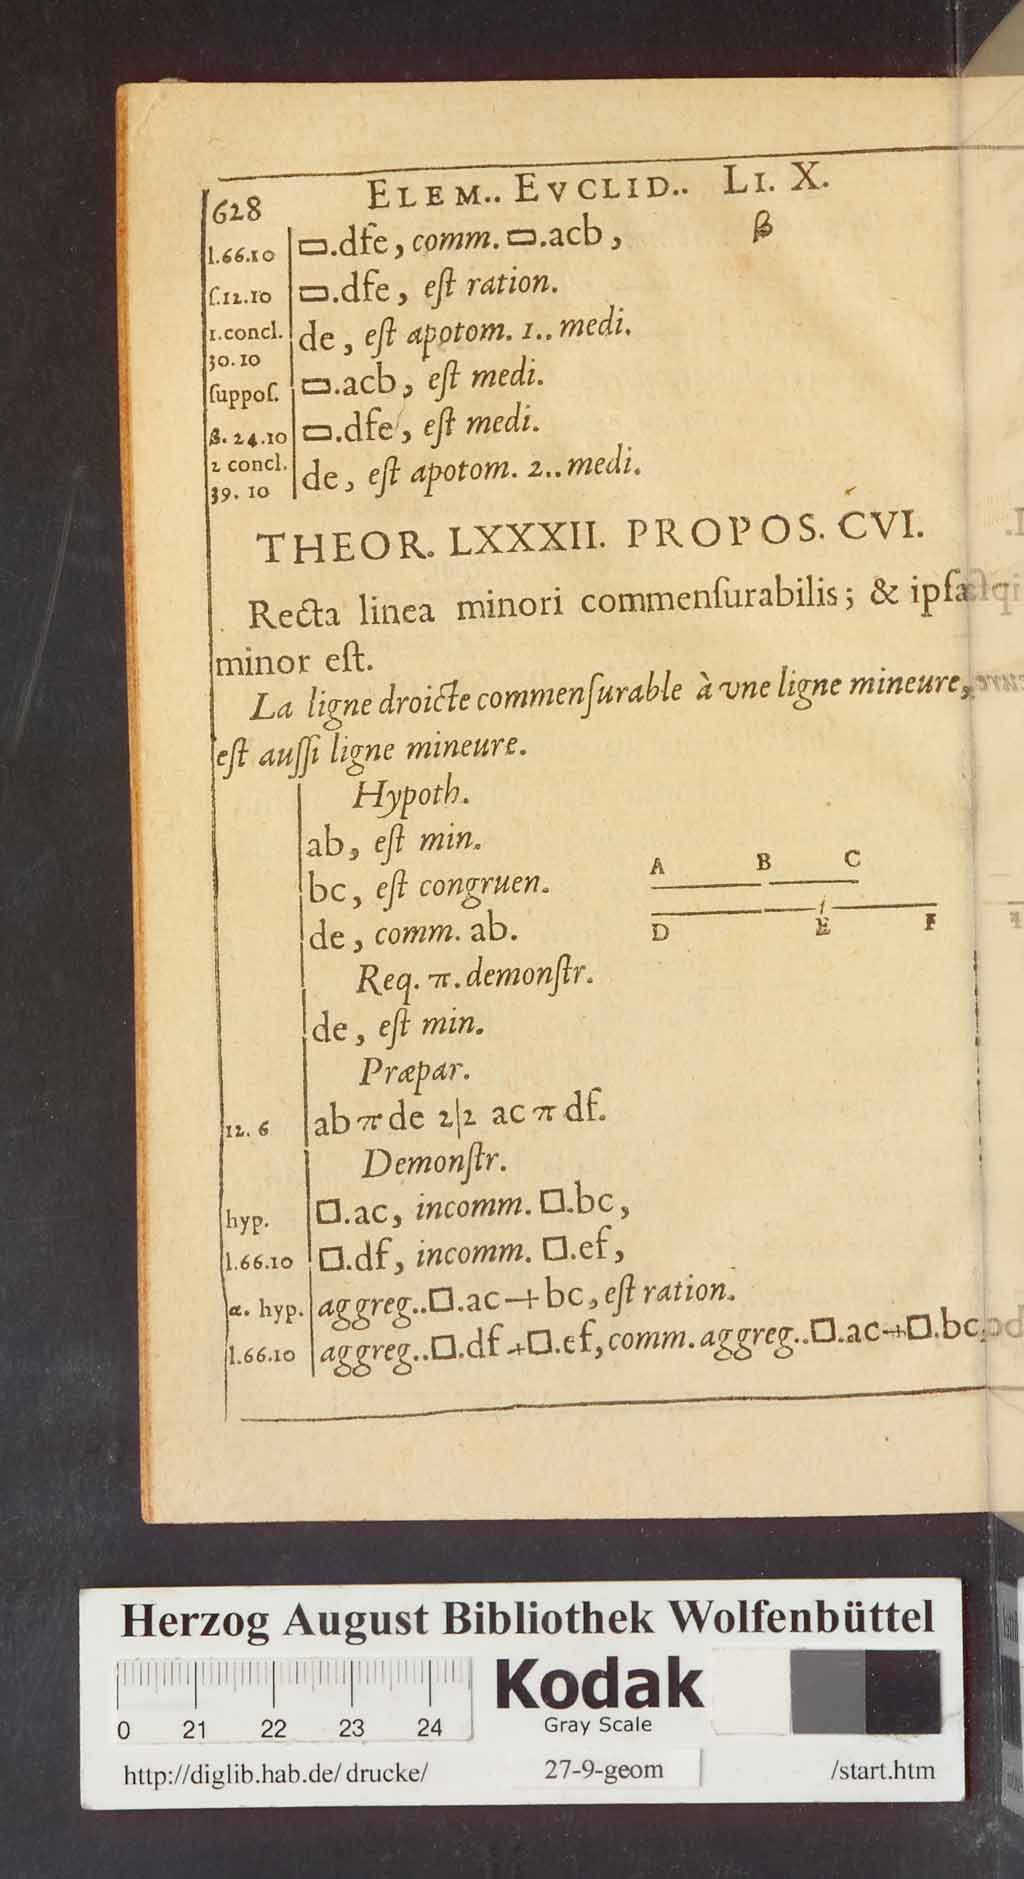 628 ELEM.. EVCLID.. LI. X.
l.66.10 ▭.dfe, comm. ▭.acb, β
ſ.12.10 ▭.dfe, eſt ration.
1.concl. de, eſt apotom. 1.. medi.
30.10
ſuppoſ. ▭.acb, eſt medi.
β. 24.10 ▭.dfe, eſt medi.
2 concl. de, eſt apotom. 2.. medi.
39. 10
THEOR. LXXXII. PROPOS. CVI.
Recta linea minori commenſurabilis; & ipſa
minor eſt.
La ligne droicte commenſurable à vne ligne mineure,
eſt auſſi ligne mineure.
Hypoth.
ab, eſt min.
bc, eſt congruen.
de, comm. ab.
A B C
D E F
Req. π. demonſtr.
de, eſt min.
Præpar.
12. 6 ab π de 2|2 ac π df.
Demonſtr.
hyp. □.ac, incomm. □.bc,
l.66.10 □.df, incomm. □.ef,
α. hyp. aggreg..□.ac + bc, eſt ration.
l.66.10 aggreg..□.df + □.ef, comm. aggreg..□.ac + □.bc,
Herzog August Bibliothek Wolfenbüttel
0 21 22 23 24
Kodak
Gray Scale
http://diglib.hab.de/drucke/ 27-9-geom /start.htm